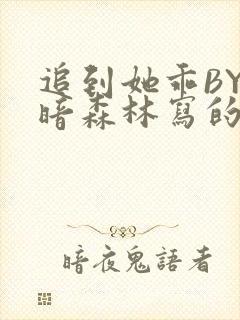 追到她乖BY
暗森林寫的
暗夜鬼語者